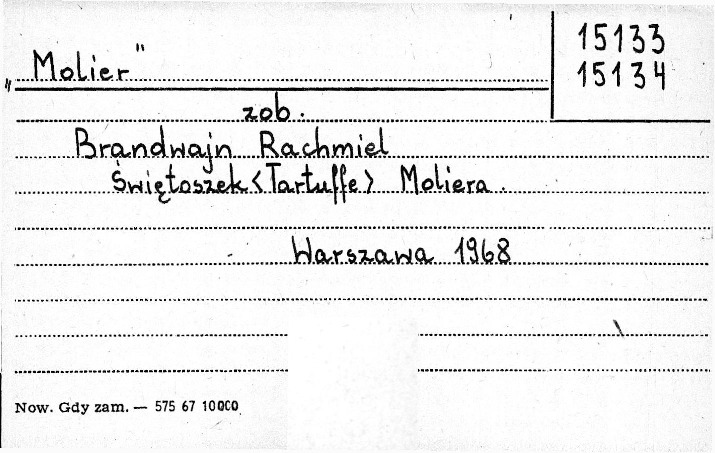 15133
15134
„Molier"
zob.
Brandwajn Rachmiel
Świętoszek <Tartuffe> Moliera.
Warszawa 1968
Now. Gdy zam. — 575 67 10000